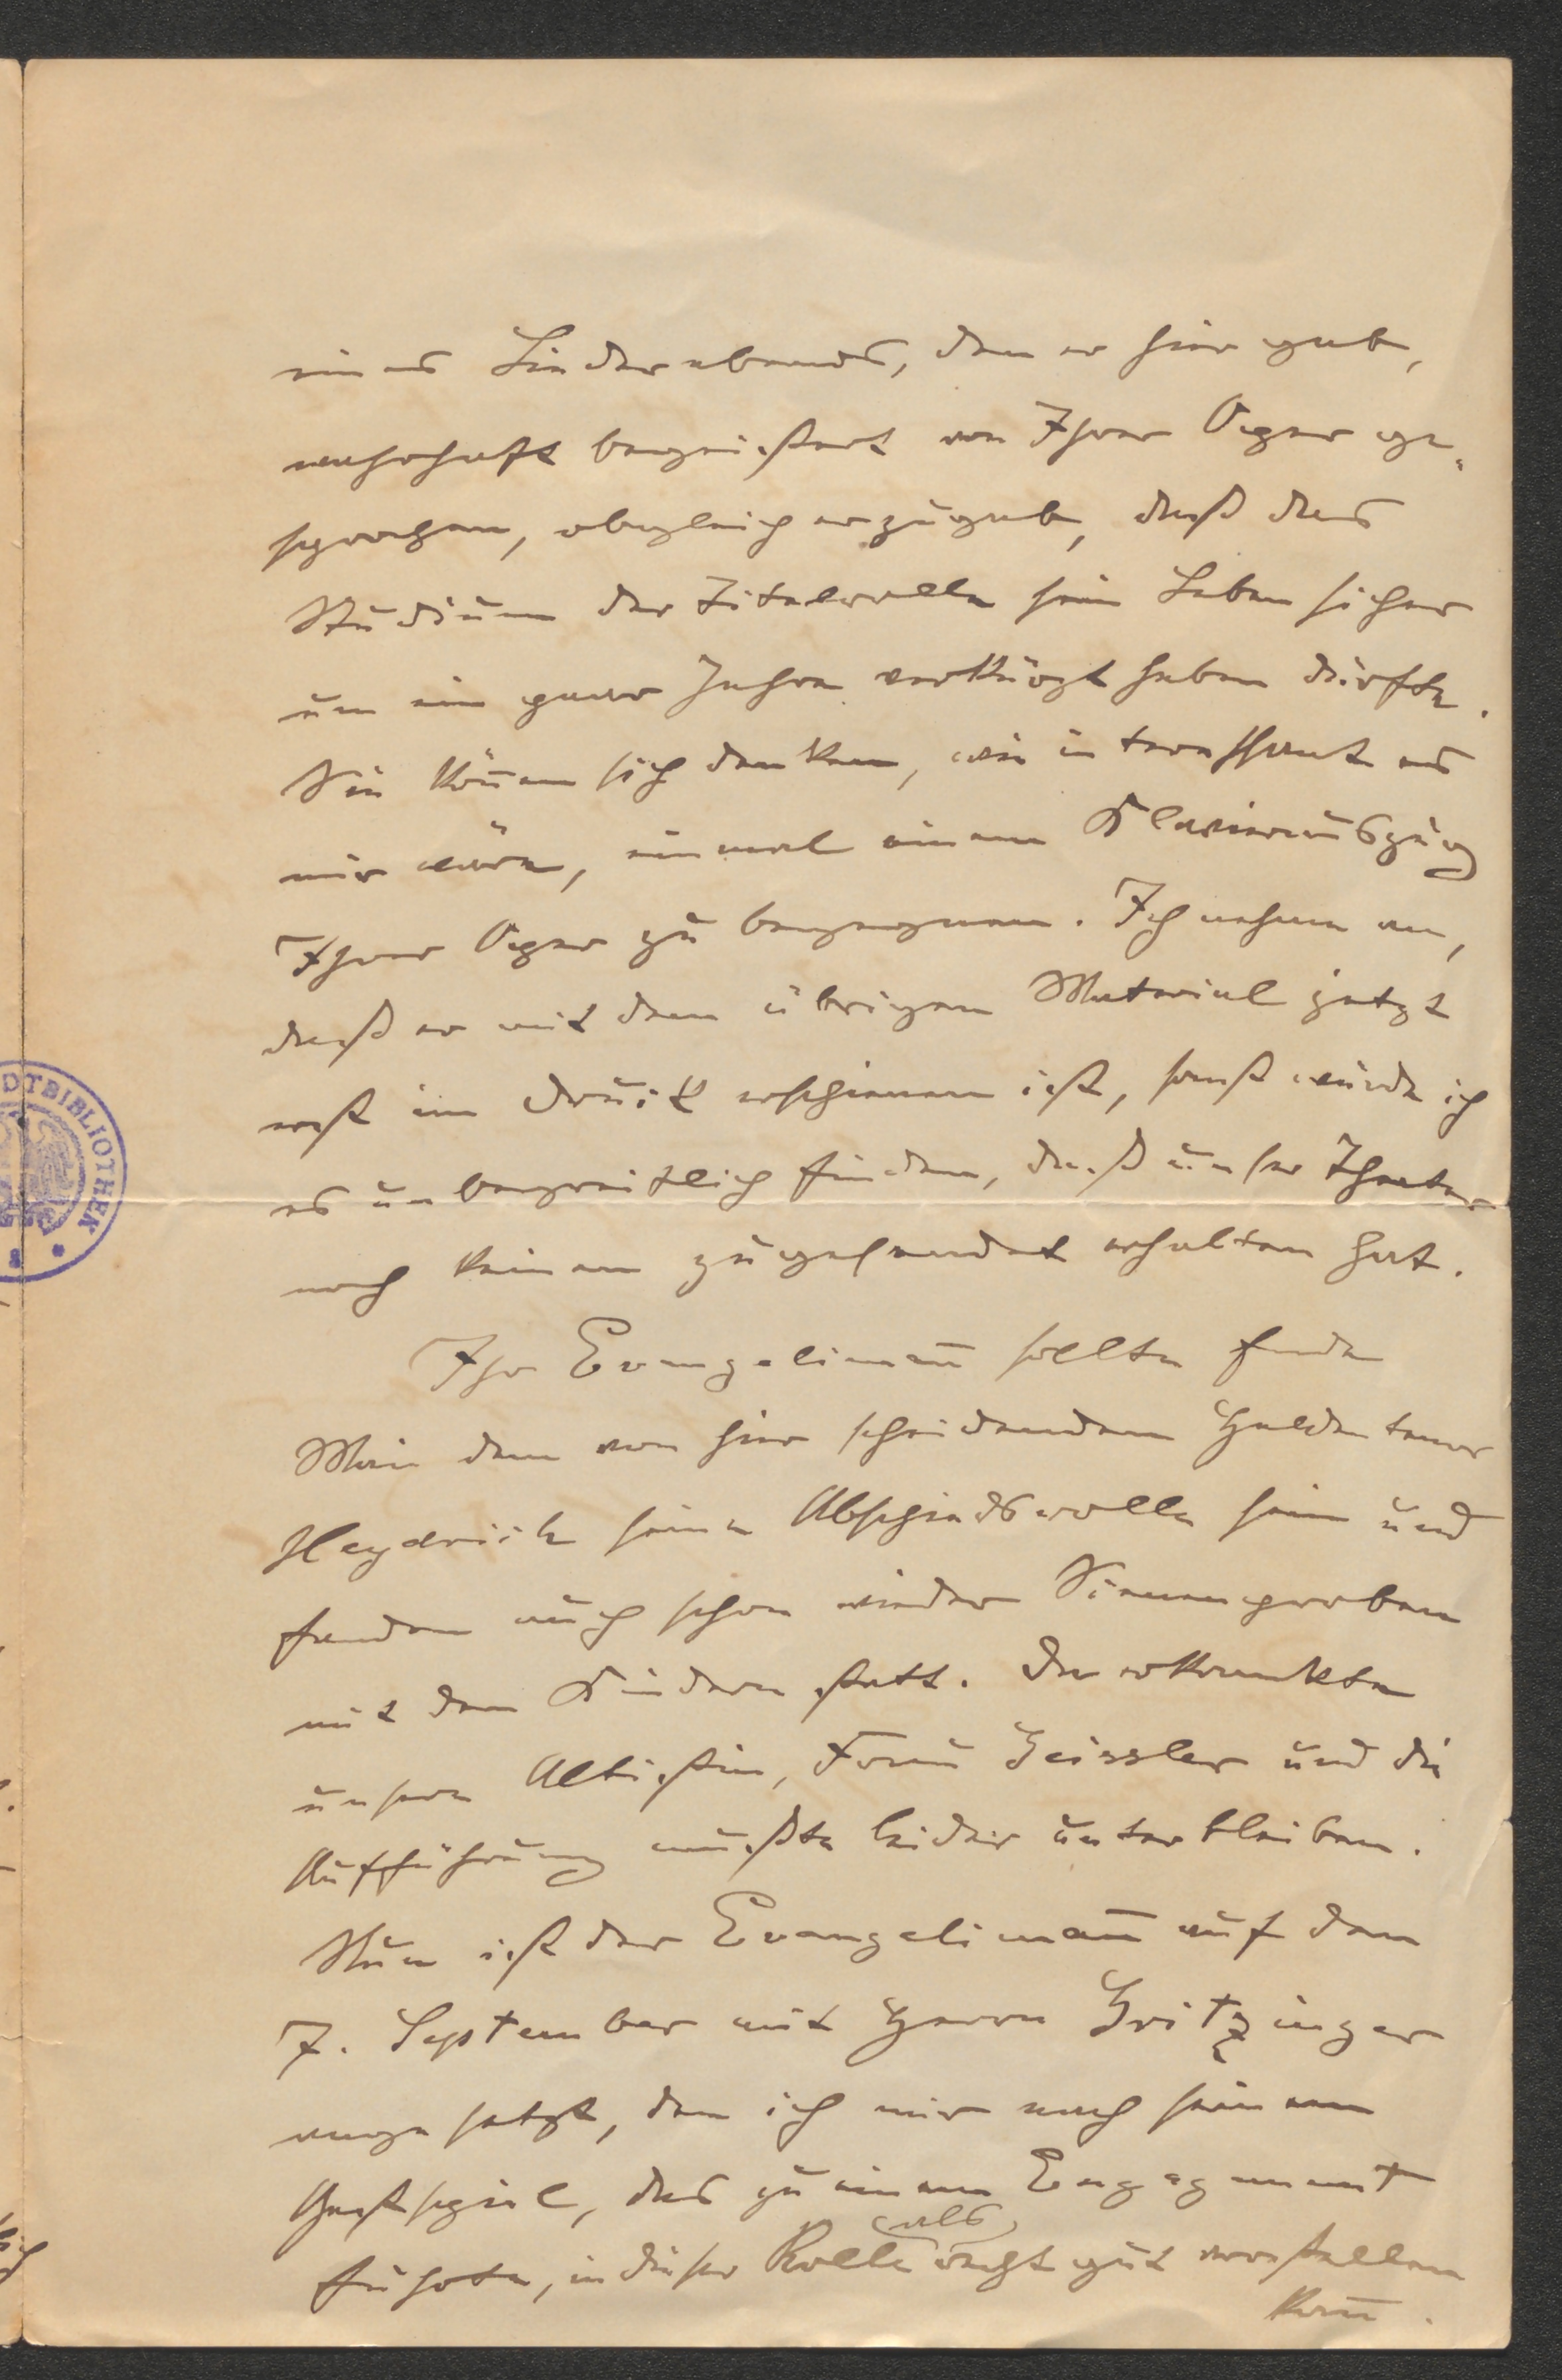 eines Liederabends, den er hier gab,
wahrhaft begeistert von Ihrer Oper ge-
sprochen, obgleich er zugab, daß das
Studium der Titelrolle sein Leben sicher
um ein paar Jahre verkürzt haben dürfte.
Sie kön̄en sich denken, wie interessant es
mir wäre, einmal einem Klavierauszug
Ihrer Oper zu begegnen. Ich nehme an,
daß er mit dem übrigen Material jetzt
erst im Druck erschienen ist, sonst würde ich
es unbegreiflich finden, daß unser Theater
noch keinen zugesendet erhalten hat.
Ihr Evangeliman̄ sollte Ende
Mai dem von hier scheidenden Heldentenor
Heydrich seine Abschiedsrolle sein und
fanden auch schon wieder Scenenproben
mit den Kindern statt. Da erkrankte
unsere Altistin, Frau Geissler und die
Aufführung mußte leider unterbleiben.
Nun ist der Evangeliman̄ auf den
7. September mit Herrn Gritzinger
angesetzt, den ich mir nach seinem
Gastspiel, das zu einem Engagement
führte, in dieser Rolle als recht gut vorstellen
kan̄.
DTBIBLIOTHEK